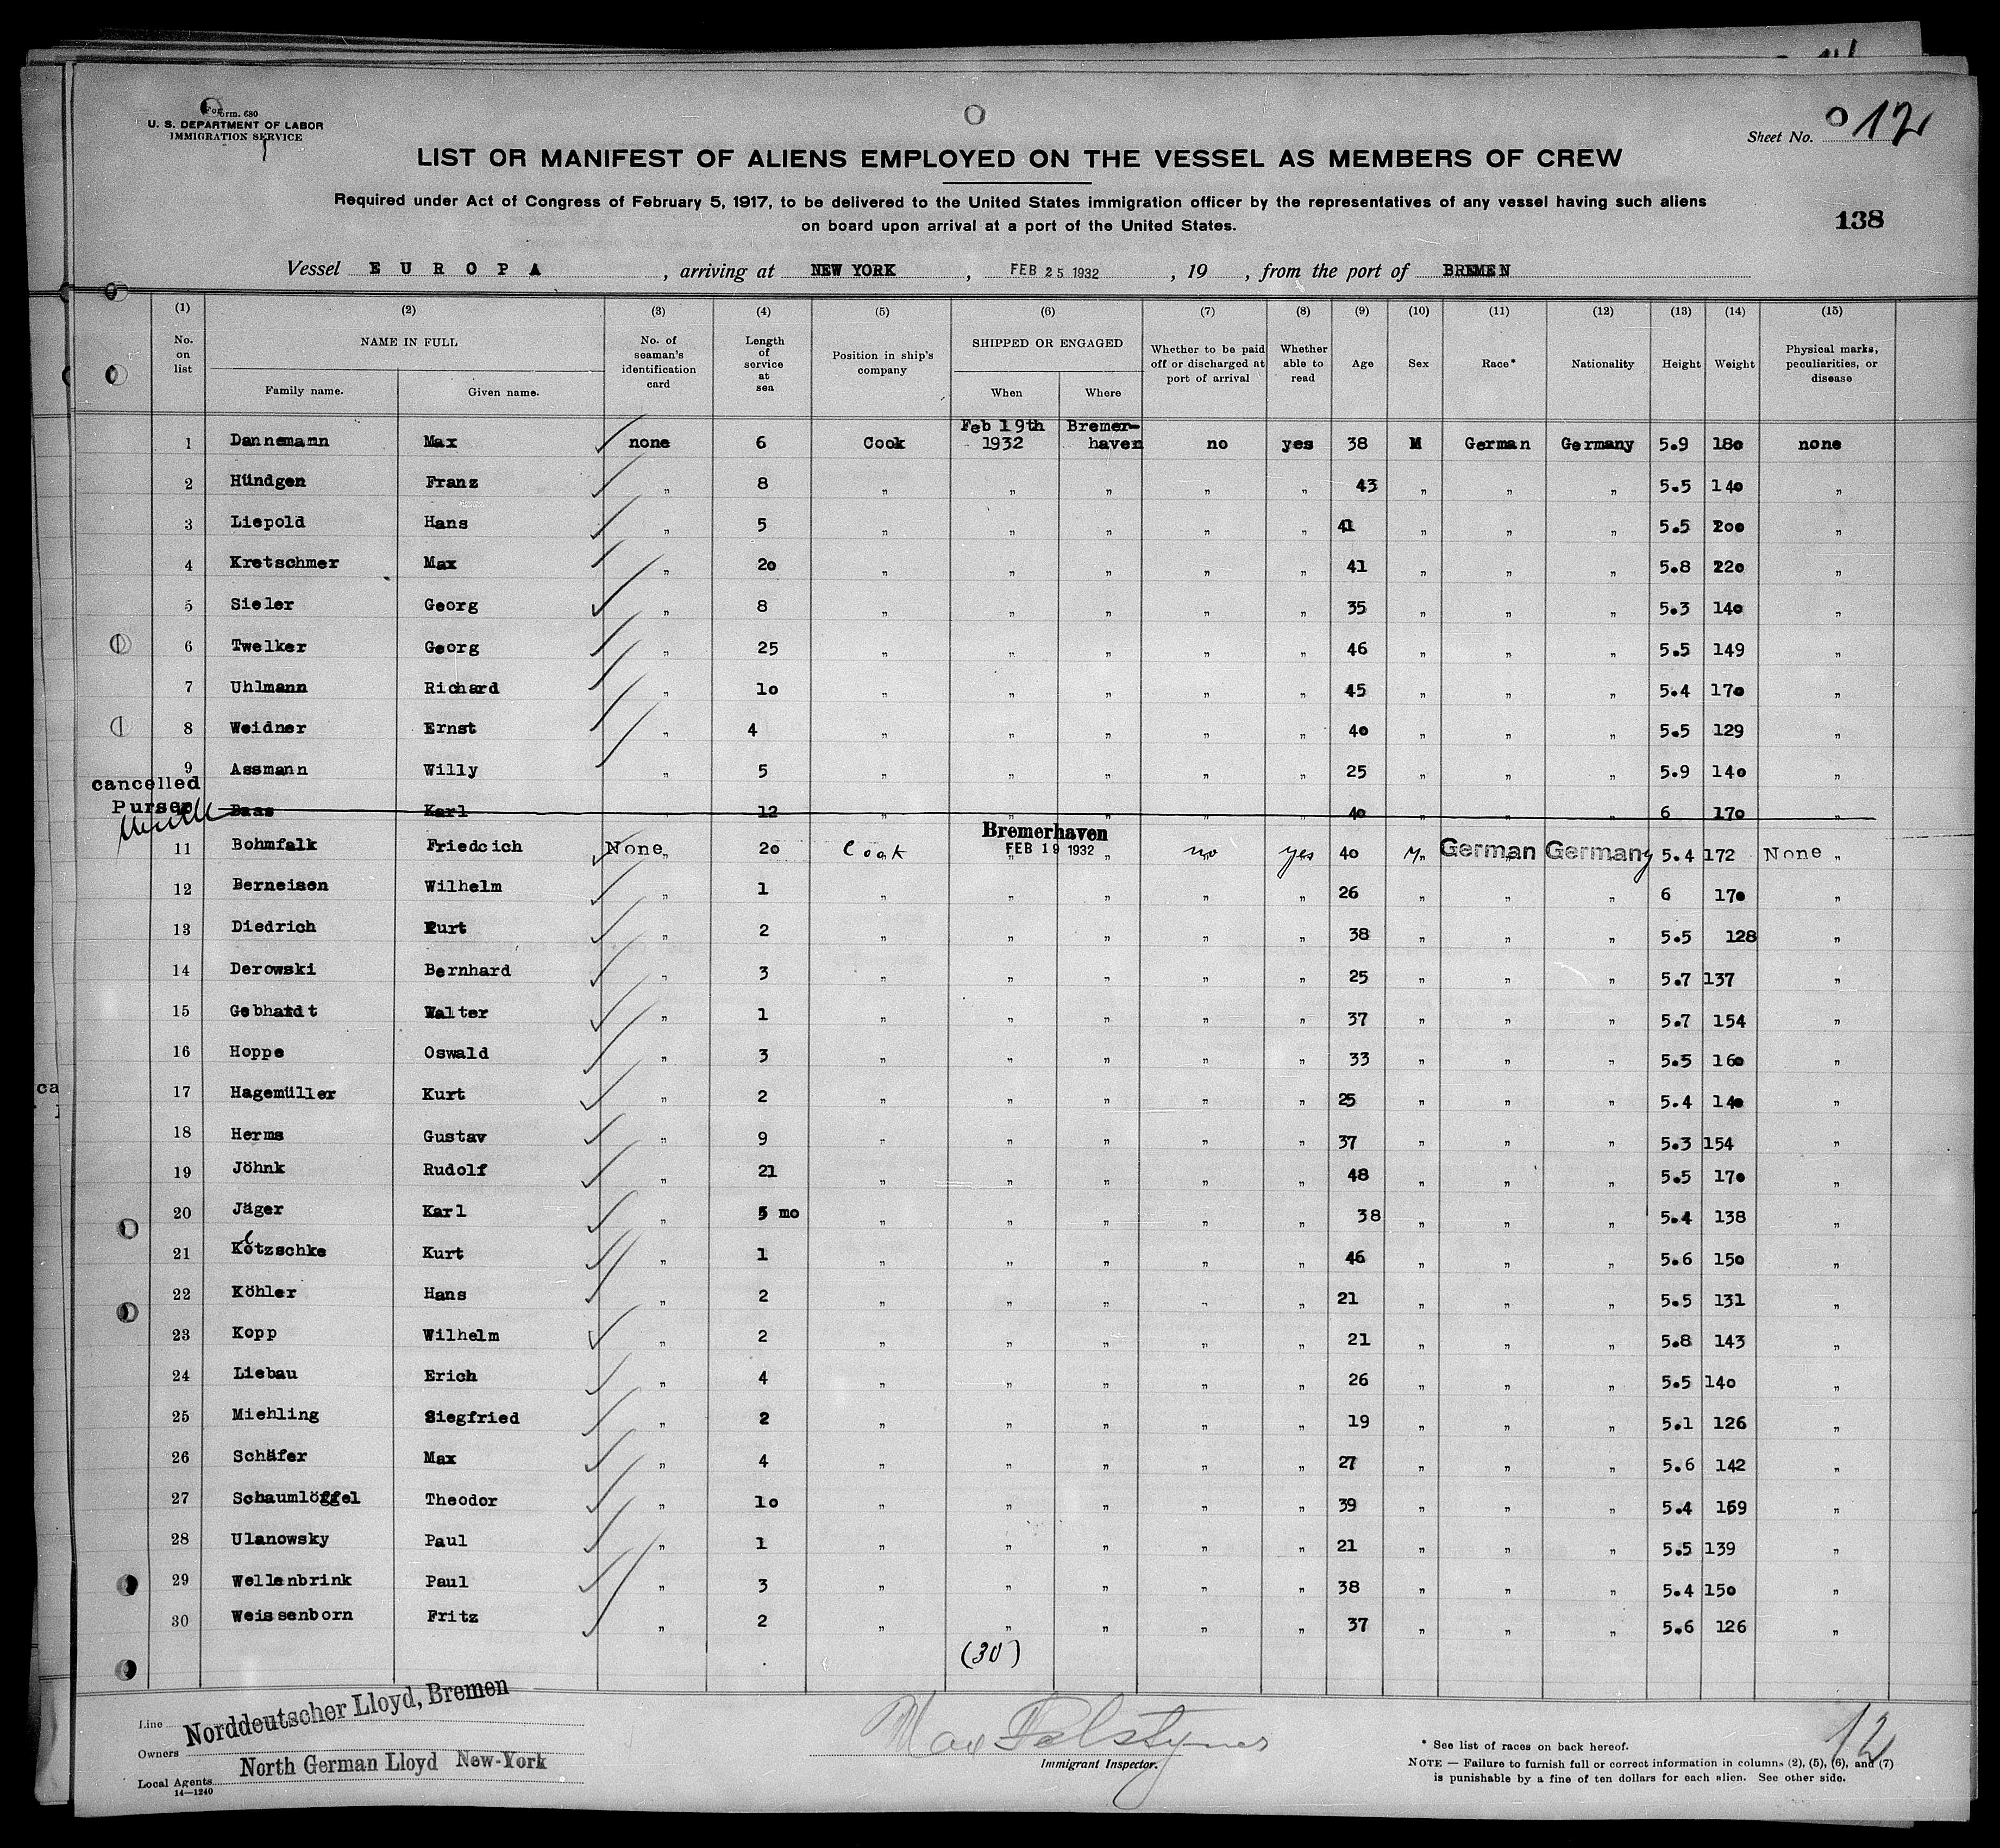 Form. 680
U. S. DEPARTMENT OF LABOR
IMMIGRATION SERVICE
Sheet No. 12
LIST OR MANIFEST OF ALIENS EMPLOYED ON THE VESSEL AS MEMBERS OF CREW
Required under Act of Congress of February 5, 1917, to be delivered to the United States immigration officer by the representatives of any vessel having such aliens
on board upon arrival at a port of the United States.
138
Vessel EUROPA , arriving at NEW YORK , FEB 25 1932 , 19 , from the port of BREMEN
(1) (2) (3) (4) (5) (6) (7) (8) (9) (10) (11) (12) (13) (14) (15)
No. on list NAME IN FULL Family name. Given name. No. of seaman's identification card Length of service at sea Position in ship's company SHIPPED OR ENGAGED When Where Whether to be paid off or discharged at port of arrival Whether able to read Age Sex Race* Nationality Height Weight Physical marks, peculiarities, or disease
1 Dannemann Max none 6 Cook Feb 19th 1932 Bremer-haven no yes 38 M German Germany 5.9 180 none
2 Hündgen Franz " 8 " " " " " 43 " " " 5.5 140 "
3 Liepold Hans " 5 " " " " " 41 " " " 5.5 200 "
4 Kretschmer Max " 20 " " " " " 41 " " " 5.8 220 "
5 Sieler Georg " 8 " " " " " 35 " " " 5.3 140 "
6 Twelker Georg " 25 " " " " " 46 " " " 5.5 149 "
7 Uhlmann Richard " 10 " " " " " 45 " " " 5.4 170 "
8 Weidner Ernst " 4 " " " " " 40 " " " 5.5 129 "
9 Assmann Willy " 5 " " " " " 25 " " " 5.9 140 "
cancelled
Purser Baas Karl " 12 " " " " " 40 " " " 6 170 "
11 Bohmfalk Friedcich None " 20 Cook Bremerhaven FEB 19 1932 " " no yes 40 M. " German Germany 5.4 172 None "
12 Berneisen Wilhelm " 1 " " " " " 26 " " " 6 170 "
13 Diedrich Kurt " 2 " " " " " 38 " " " 5.5 128 "
14 Derowski Bernhard " 3 " " " " " 25 " " " 5.7 137 "
15 Gebhardt Walter " 1 " " " " " 37 " " " 5.7 154 "
16 Hoppe Oswald " 3 " " " " " 33 " " " 5.5 160 "
17 Hagemüller Kurt " 2 " " " " " 25 " " " 5.4 140 "
18 Herms Gustav " 9 " " " " " 37 " " " 5.3 154 "
19 Jöhnk Rudolf " 21 " " " " " 48 " " " 5.5 170 "
20 Jäger Karl " 5 mo " " " " " 38 " " " 5.4 138 "
21 Kötzschke Kurt " 1 " " " " " 46 " " " 5.6 150 "
22 Köhler Hans " 2 " " " " " 21 " " " 5.5 131 "
23 Kopp Wilhelm " 2 " " " " " 21 " " " 5.8 143 "
24 Liebau Erich " 4 " " " " " 26 " " " 5.5 140 "
25 Miehling Siegfried " 2 " " " " " 19 " " " 5.1 126 "
26 Schäfer Max " 4 " " " " " 27 " " " 5.6 142 "
27 Schaumlöffel Theodor " 10 " " " " " 39 " " " 5.4 169 "
28 Ulanowsky Paul " 1 " " " " " 21 " " " 5.5 139 "
29 Wellenbrink Paul " 3 " " " " " 38 " " " 5.4 150 "
30 Weissenborn Fritz " 2 " " " " " 37 " " " 5.6 126 "
(30)
Line Norddeutscher Lloyd, Bremen
Owners
North German Lloyd New-York
Local Agents
14—1240
Max
Immigrant Inspector.
12
* See list of races on back hereof.
NOTE — Failure to furnish full or correct information in columns (2), (5), (6), and (7)
is punishable by a fine of ten dollars for each alien. See other side.